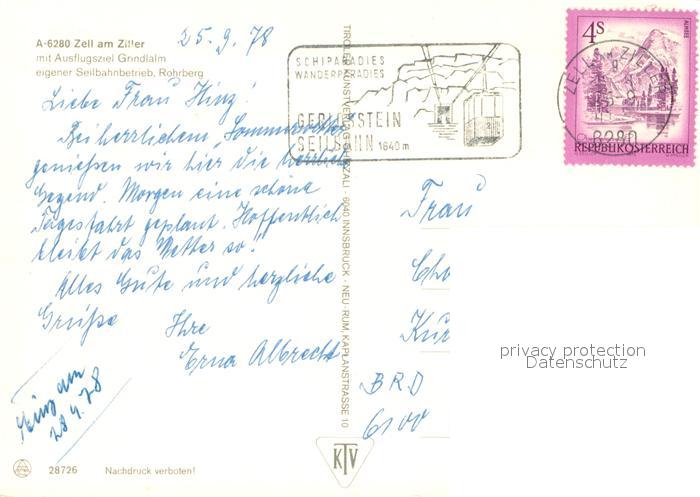 A-6280 Zell am Ziller
mit Ausflugsziel Grindlalm
eigener Seilbahnbetrieb, Rohrberg
25.9.78
Liebe Frau Hinz!
Bei herrlichem Sommerwetter
genießen wir hier die herrliche
Gegend. Morgen eine schöne
Tagesfahrt geplant. Hoffentlich
bleibt das Wetter so!
Alles Gute und herzliche
Grüße
Ihre
Erna Albrecht
am
28.9.78
28726 Nachdruck verboten!
6040 INNSBRUCK - NEU-RUM, KAPLANSTRASSE 10
KTV
SCHIPARADIES
WANDERPARADIES
GERLOSSTEIN
SEILBAHN 1640 m
4S
ALMSEE
REPUBLIK ÖSTERREICH
8280
Frau
Cho
Kur
BRD
6100
privacy protection
Datenschutz